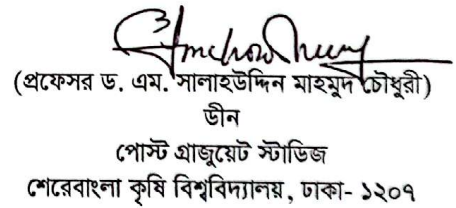 (প্রফেসর ড. এম. সালাহউদ্দিন মাহমুদ চৌধুরী)
ডীন
পোস্ট গ্রাজুয়েট স্টাডিজ
শেরেবাংলা কৃষি বিশ্ববিদ্যালয়, ঢাকা- ১২০৭